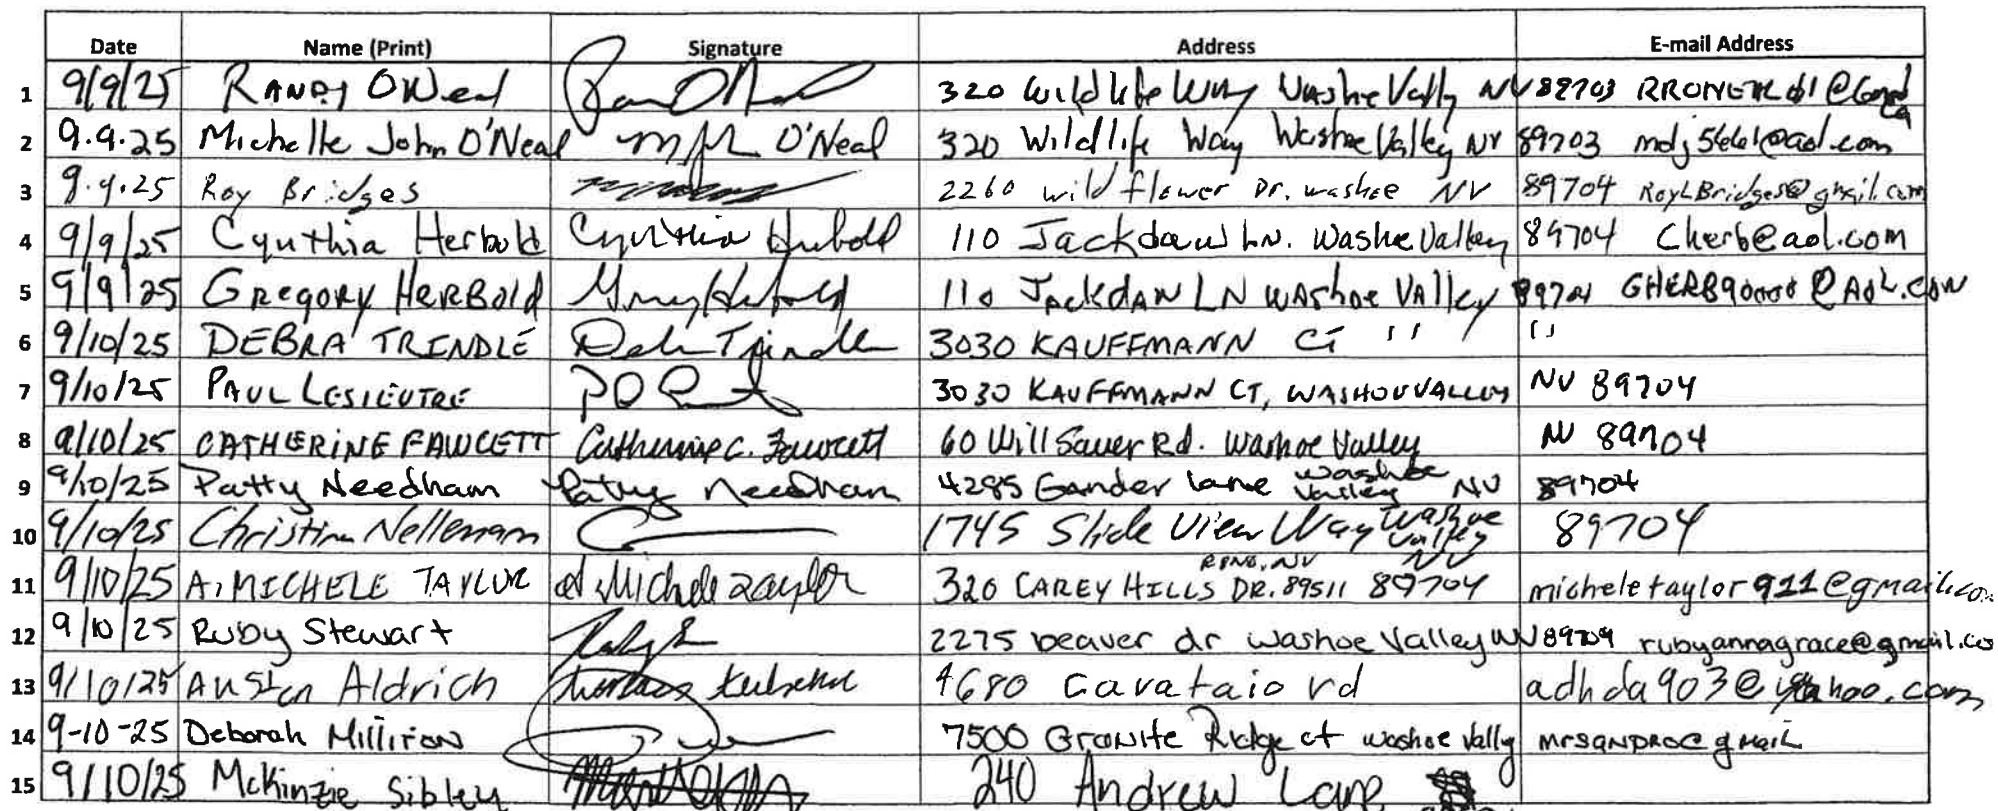 Date Name (Print) Signature Address E-mail Address
1 9/9/25 RANDY ONeal 320 Wildlife Way Washoe Vally NV 89703
2 9.9.25 Michelle John O'Neal O'Neal 320 Wildlife Way Washoe Valley NV 89703 mdj5661@aol.com
3 9.9.25 Roy Bridges 2260 wild flower Dr. washoe NV 89704 RoyLBridges@gmail.com
4 9/9/25 Cynthia Herbold Cynthia Herbold 110 Jackdaw Ln. Washoe Valley 89704 Cherb@aol.com
5 9/9/25 GREGORY HERBOld 110 JackdAW LN WAShoe VAlley 89704 GHERB90000@AOL.COM
6 9/10/25 DEBRA TRINDLE Deb Trindle 3030 KAUFFMANN CT " "
7 9/10/25 PAUL LESIEUTRE 3030 KAUFFMANN CT, WASHOUVALLEY NV 89704
8 9/10/25 CATHERINE FAWCETT Catherine C. Fawcett 60 Will Sauer Rd. Washoe Valley NV 89704
9 9/10/25 Patty Needham Patty Needham 4285 Gander lane washoe Valley NV 89704
10 9/10/25 Christina Nellemann 1745 Slide View Way Washoe Valley NV 89704
11 9/10/25 A. MICHELE TAYLOR A. Michele Taylor 320 CAREY HILLS DR. RENO, NV 89511 89704 micheletaylor911@gmail.co
12 9/10/25 Ruby Stewart 2275 beaver dr washoe Valley NV 89704 rubyannagrace@gmail.co
13 9/10/25 Austen Aldrich 4680 Cavataio rd adhda903@yahoo.com
14 9-10-25 Deborah Millison 7500 Granite Ridge ct washoe Vally mrsandro@gmail
15 9/10/25 McKinzie Sibley 240 Andrew Lane